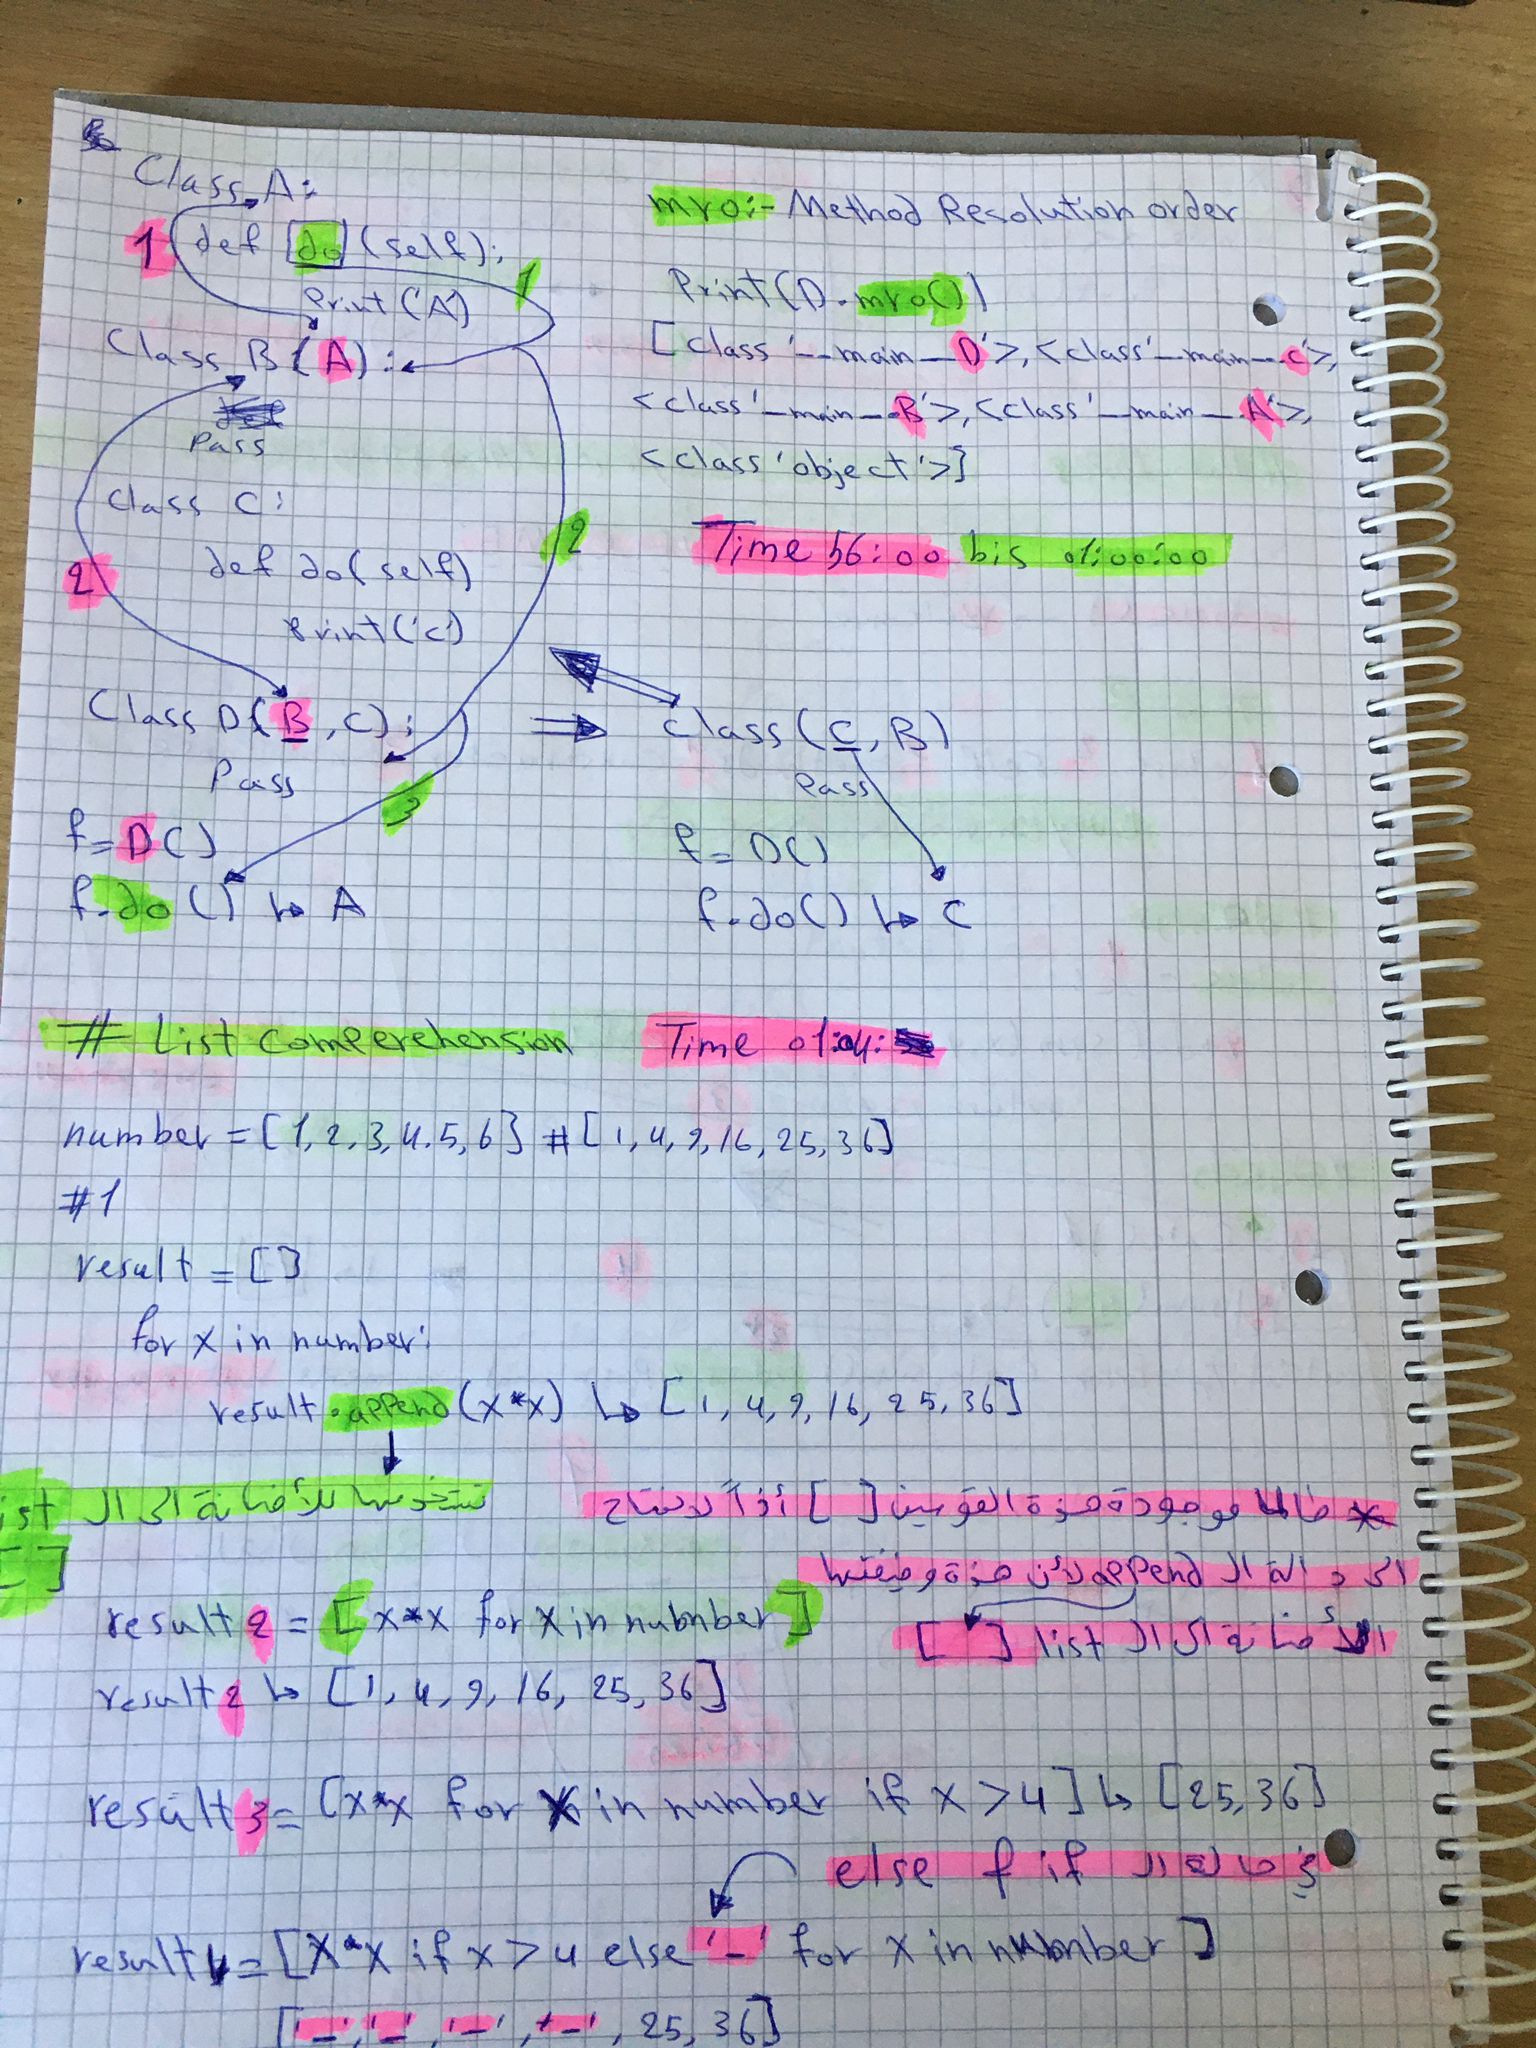 Class A:
1 def do (self):
1
Print('A')
Class B(A):
Pass
Class C:
def do(self)
Print('c')
2
2
Class D(B, C):
Pass
3
f=D()
f.do() ↳ A
mro:- Method Resolution order
Print(D.mro())
[class '__main__D'>, <class'__main__C'>,
<class'__main__B'>, <class'__main__A'>,
<class 'object'>]
Time 56:00 bis 01:00:00
⇒ class(C, B)
Pass
f=D()
f.do() ↳ C
# List Comperehension Time 01:04:
number = [1, 2, 3, 4.5, 6] # [1, 4, 9, 16, 25, 36]
#1
result = []
for x in number:
result.append(x*x) ↳ [1, 4, 9, 16, 25, 36]
نستخدمها للأضافة الى ال ist
[ ]
* طالما موجودة هذة القوسين [ ] أذاً لا نحتاج
الى دالة ال append لأن هذة وضيفتها
الأضافة الى ال list [ ]
result2 = [x*x for x in number]
result2 ↳ [1, 4, 9, 16, 25, 36]
result3 = [x*x for x in number if x > 4] ↳ [25, 36]
في حالة ال else f if
result4 = [x*x if x > 4 else '_' for x in number]
['_', '_', '_', '_', 25, 36]